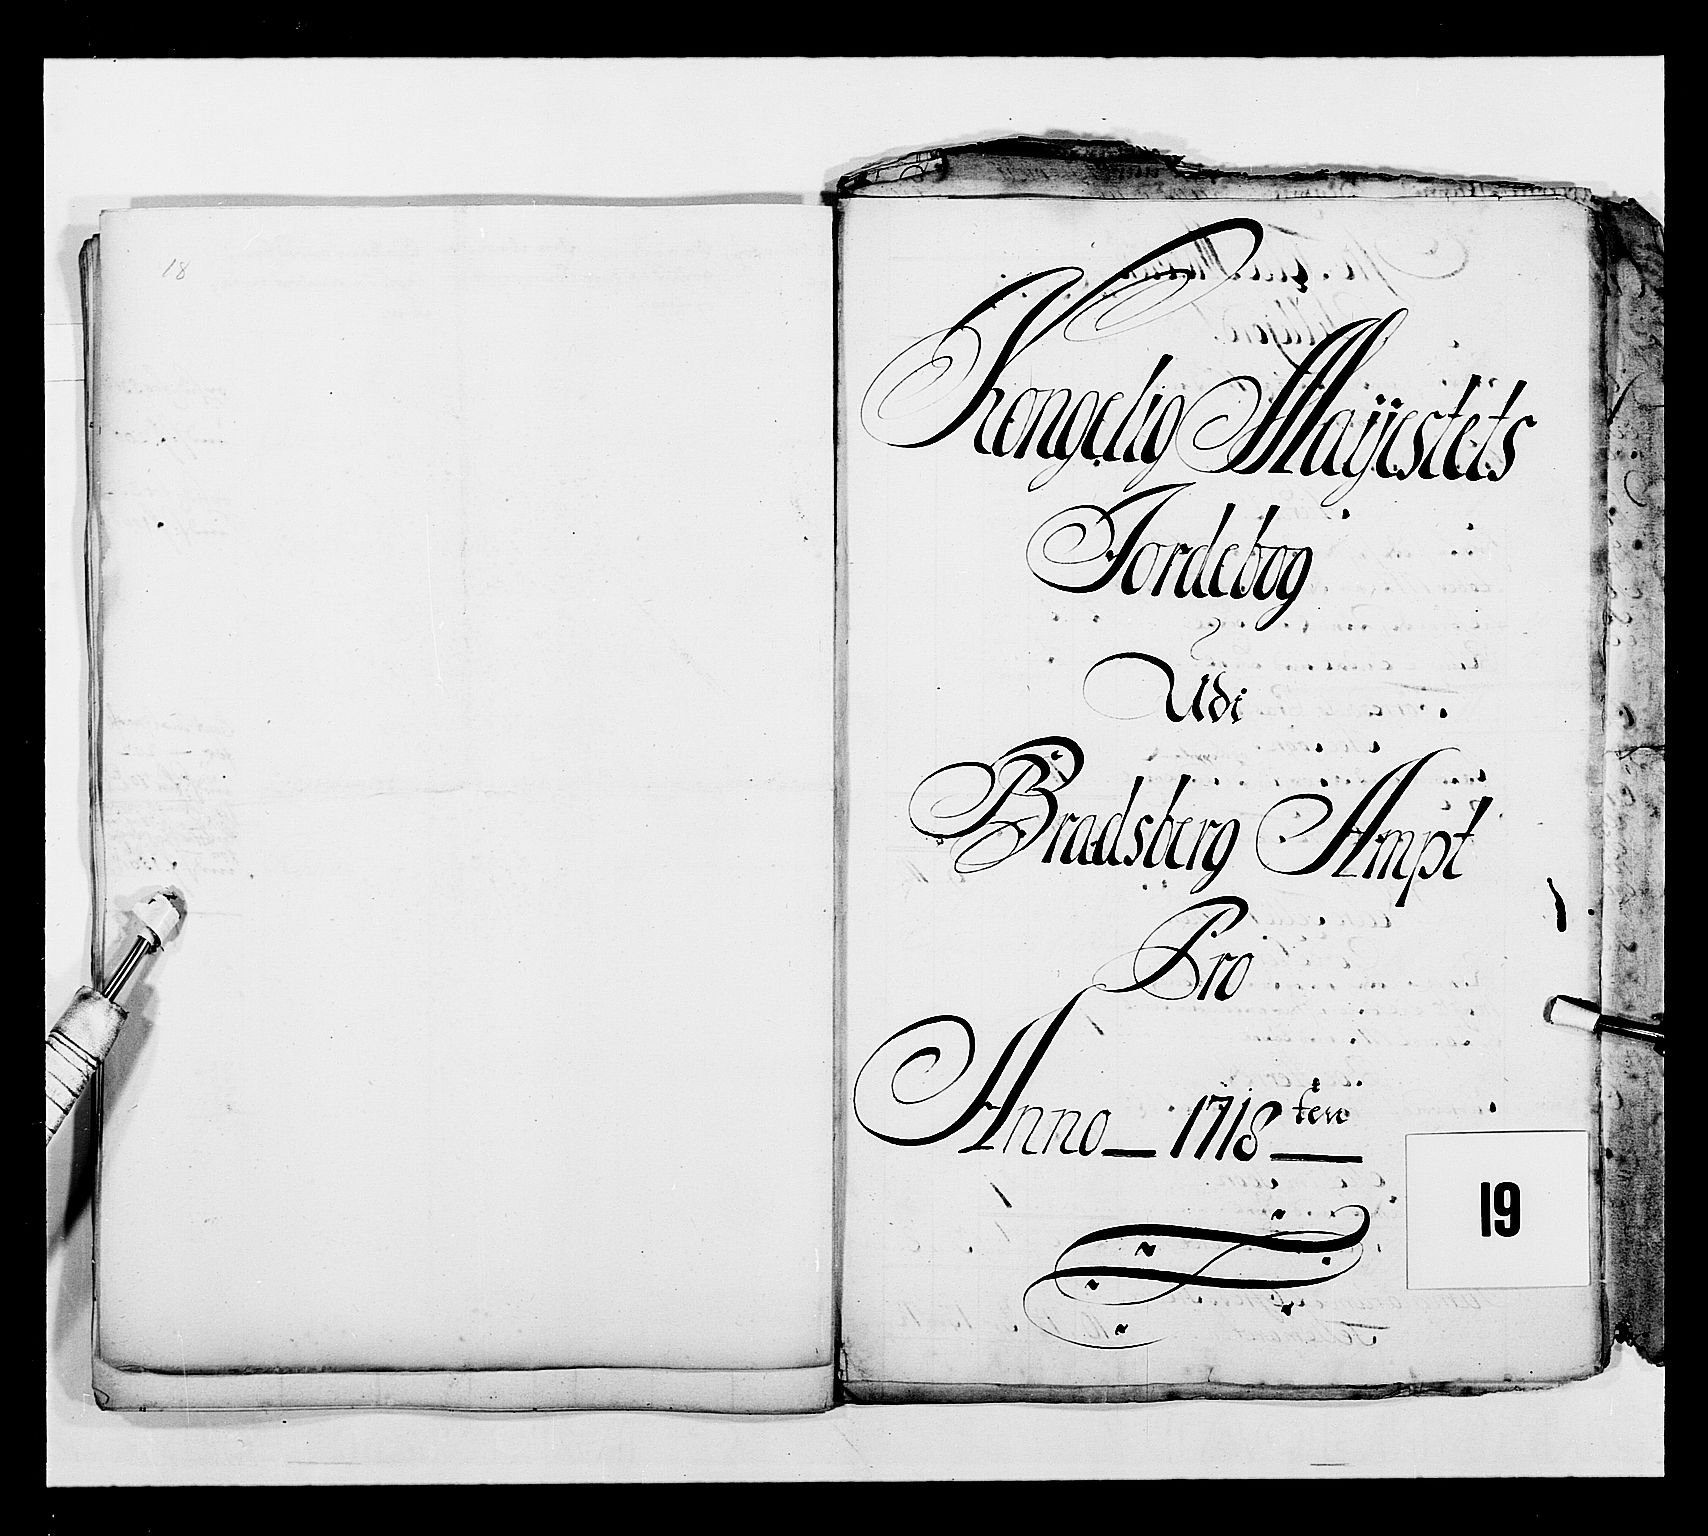 18
Kongelig Mayjestets
Jordebog
Udi
Bradsberg Ampt
Pro
Anno 1718 ten
19